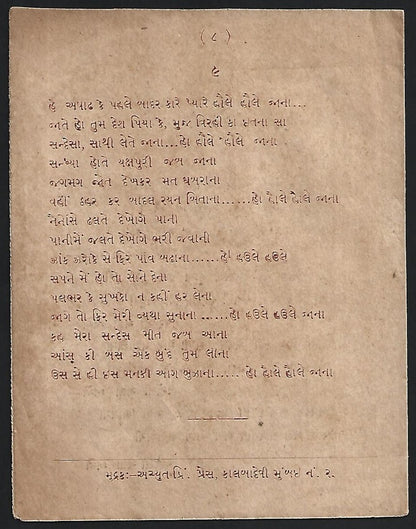 ( ૮ )
૯
હે અષાઢ કે પહલે બાદર કારે પ્યારે હૌલે હૌલે જાના...
જાતે હો તુમ દેશ પિયા કે, મુજ બિરહી કા ઇતના સા
સન્દેસા, સાથી લેતે જાના...હો હૌલે હૌલે જાના
સન્ધ્યા હોતે યક્ષપુરી જબ જાના
જગમગ જોત દેખકર મત ઘબરાના
વહીં ઠહર કર બાદલ રયન બિતાના......હો હૌલે હૌલે જાના
નૈનોંસે ઢલતે દેખોગે પાની
પાનીમેં જલતે દેખોગે ભરી જવાની
ઝાંક ઝરોકે સે ફિર પાંવ બઢાના......હો હઉલે હઉલે
સપને મેં હો તો સોને દેના
પલભર કે સુખકો ન કહીં હર લેના
જાગ તો ફિર મેરી વ્યથા સુનાના......હો હઉલે હઉલે જાના
કહ મેરા સન્દેસ મીત જબ આના
આંસુ કી બસ એક બુંદ તુમ લાના
ઉસ સે હી ઇસ મનકી આગ બુઝાના......હો હૌલે હૌલે જાના
મુદ્રક:-અચ્યુત પ્રિં. પ્રેસ, કાલબાદેવી મુંબઇ નં. ૨.